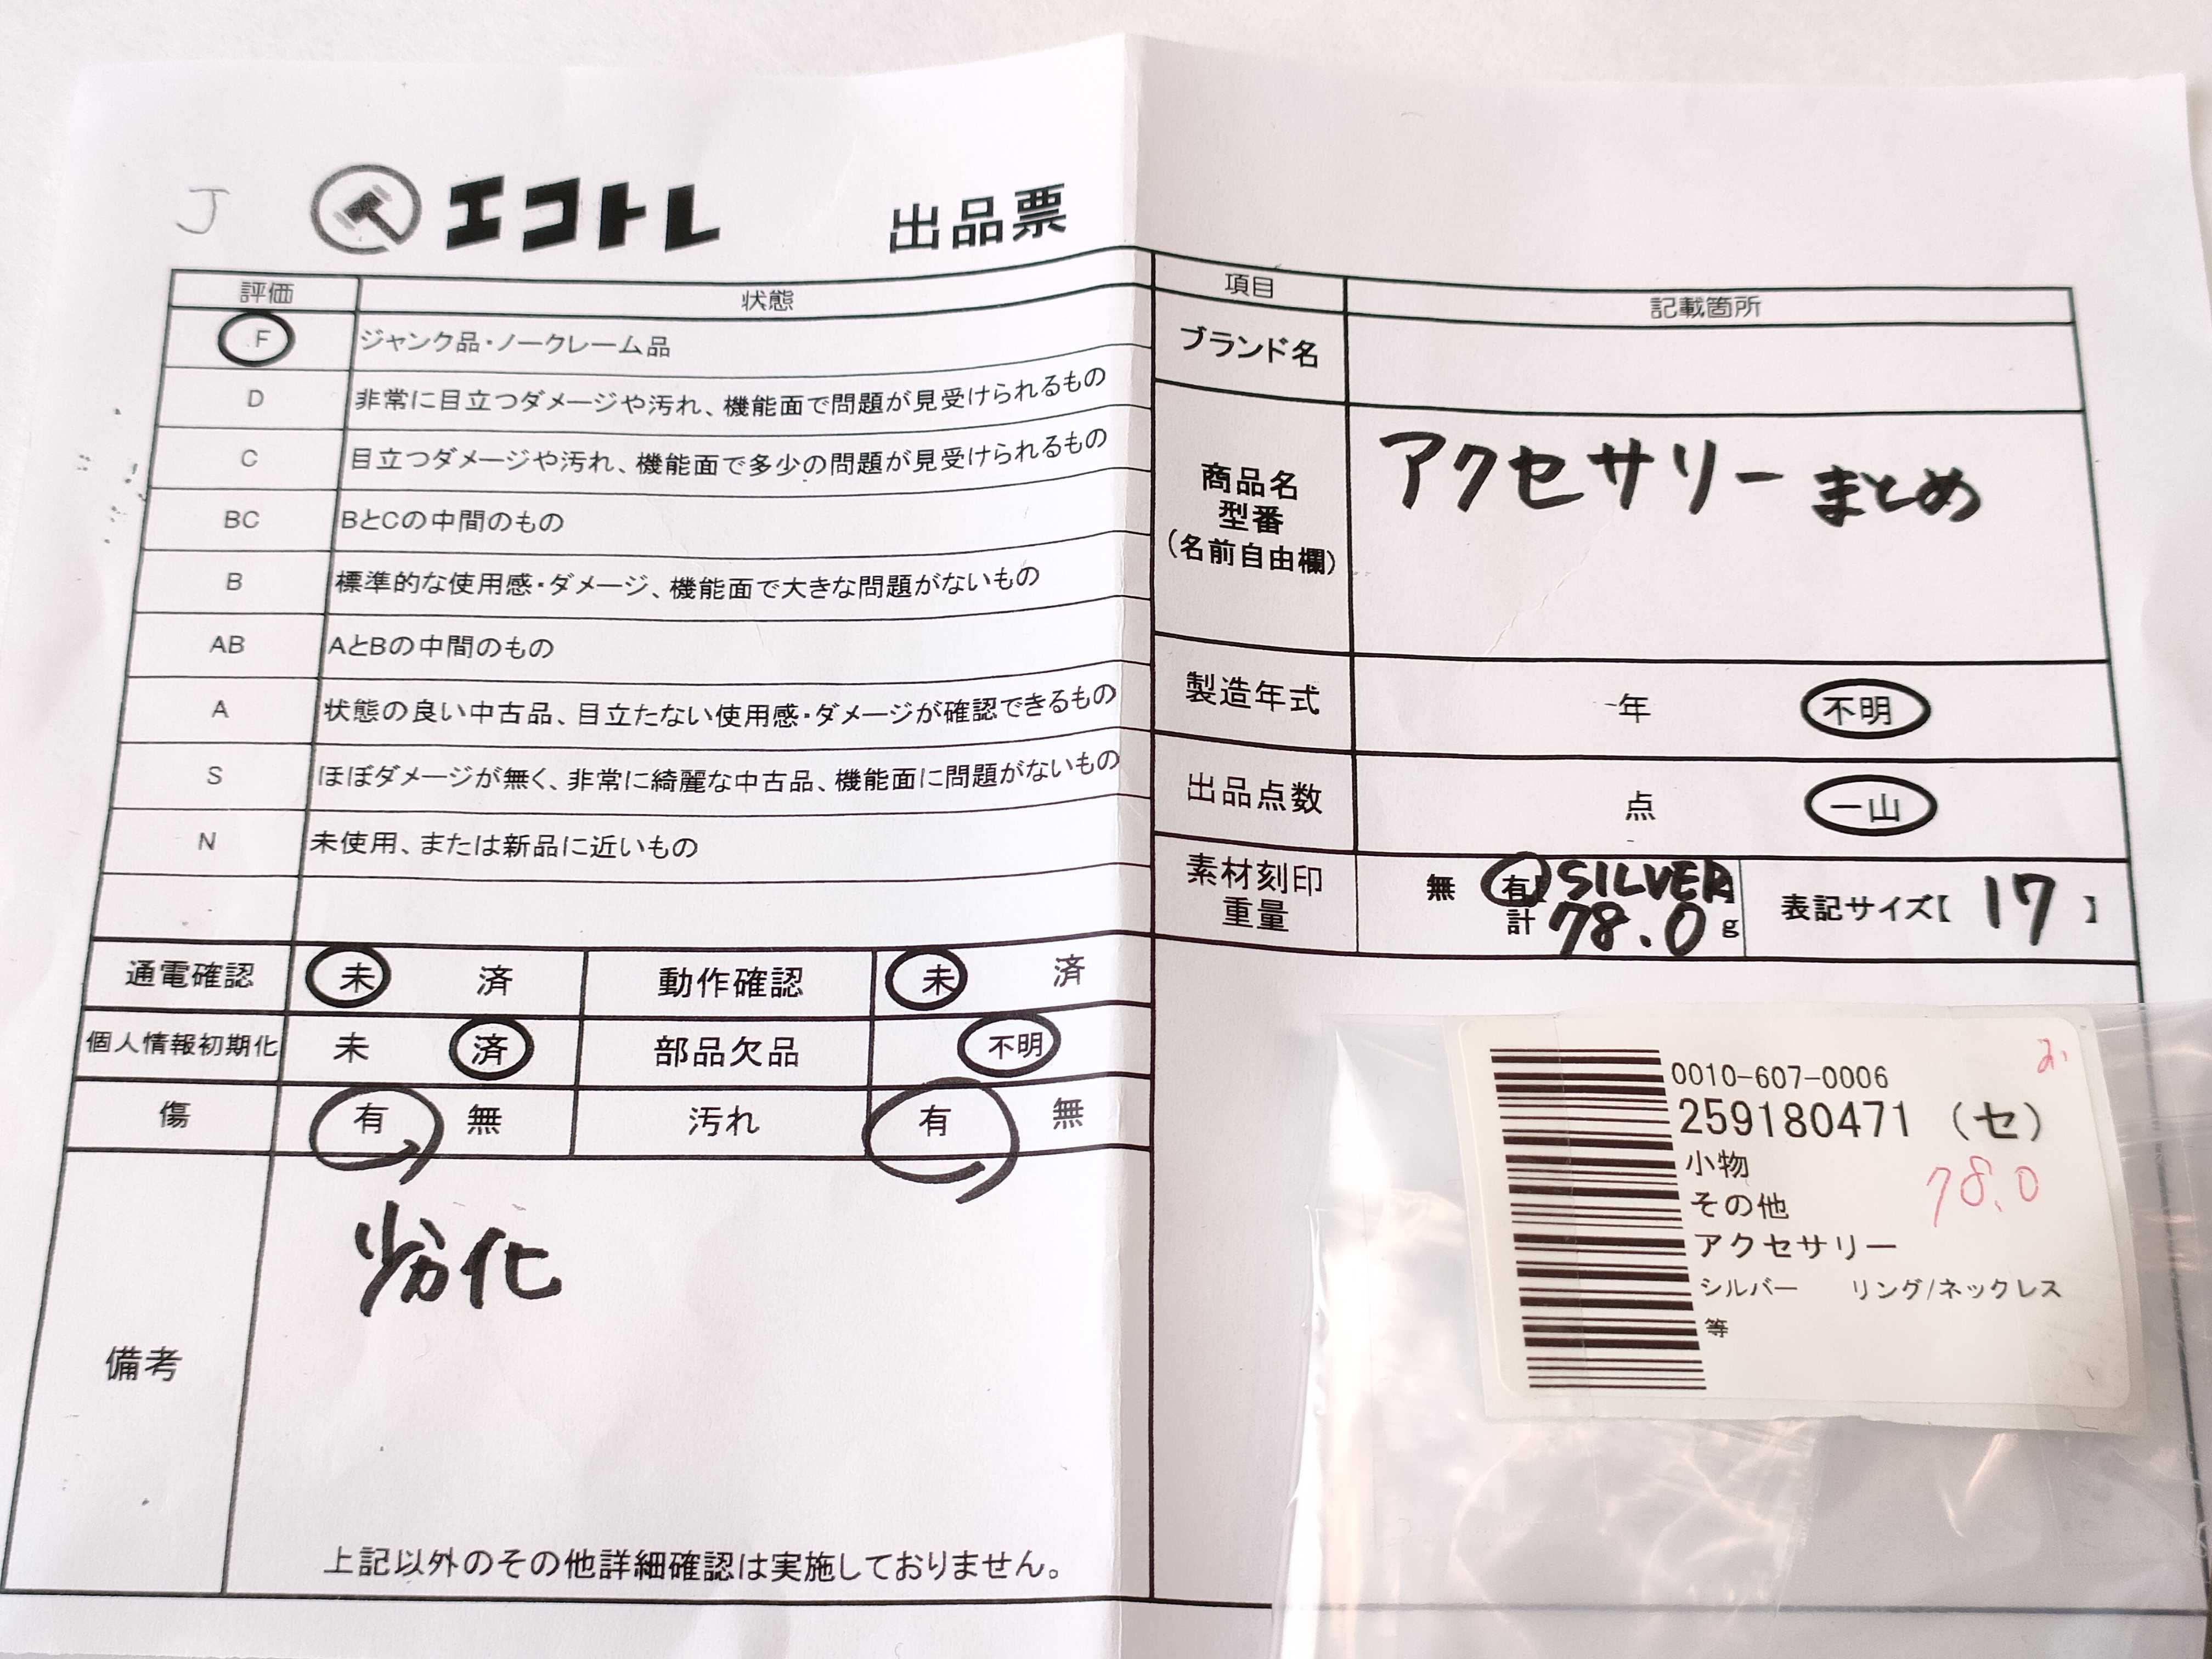 J
エコトレ 出品票
評価 状態
F ジャンク品・ノークレーム品
D 非常に目立つダメージや汚れ、機能面で問題が見受けられるもの
C 目立つダメージや汚れ、機能面で多少の問題が見受けられるもの
BC BとCの中間のもの
B 標準的な使用感・ダメージ、機能面で大きな問題がないもの
AB AとBの中間のもの
A 状態の良い中古品、目立たない使用感・ダメージが確認できるもの
S ほぼダメージが無く、非常に綺麗な中古品、機能面に問題がないもの
N 未使用、または新品に近いもの
通電確認 未 済 動作確認 未 済
個人情報初期化 未 済 部品欠品 不明
傷 有 無 汚れ 有 無
備考
劣化
上記以外のその他詳細確認は実施しておりません。
項目 記載箇所
ブランド名
商品名
型番
(名前自由欄)
アクセサリーまとめ
製造年式 年 不明
出品点数 点 一山
素材刻印
重量
無 有 SILVER
計 78.0 g
表記サイズ【 17 】
0010-607-0006
259180471 (セ)
小物
その他
78.0
アクセサリー
シルバー リング/ネックレス
等